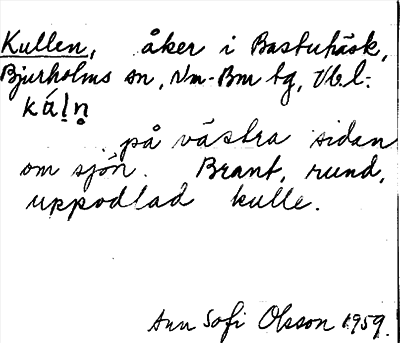 Kullen, åker i Bastuträsk,
Bjurholms sn, Nm-Bm tg, Vbl.
på västra sidan
om sjön. Brant, rund,
uppodlad kulle.
Ann Sofi Olsson 1959.